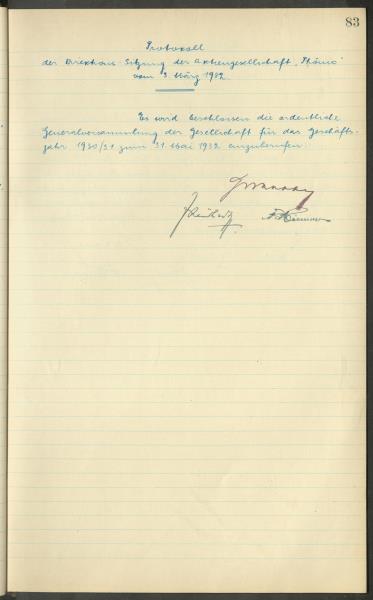 83
Protokoll
der Direktions-Sitzung der Aktiengesellschaft „Phönix"
vom 3. März 1932.
Es wird beschlossen die ordentliche
Generalversammlung der Gesellschaft für das Geschäfts-
jahr 1930/31 zum 31. Mai 1932 einzuberufen.